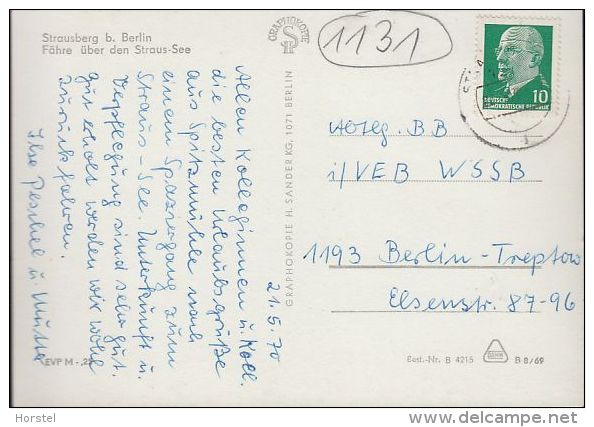 Strausberg b. Berlin
Fähre über den Straus-See
GRAPHOKOPIE
1131
DEUTSCHE
DEMOKRATISCHE REPUBLIK
10
21.5.70
Allen Kolleginnen u. Koll.
die besten Urlaubsgrüße
aus Spitzmühle nach
einem Spaziergang zum
Straus-See. Unterkunft u.
Verpflegung sind sehr gut.
gut erholt werden wir wohl
zurück fahren.
Ilse Peschel u. Mutter
GRAPHOKOPIE H. SANDER KG, 1071 BERLIN
Abtlg. B B
i/VEB WSSB
1193 Berlin-Treptow
Elsenstr. 87-96
EVP M -,25
Best.-Nr. B 4215
B 8/69
Horstel
©DELCAMPE.NET